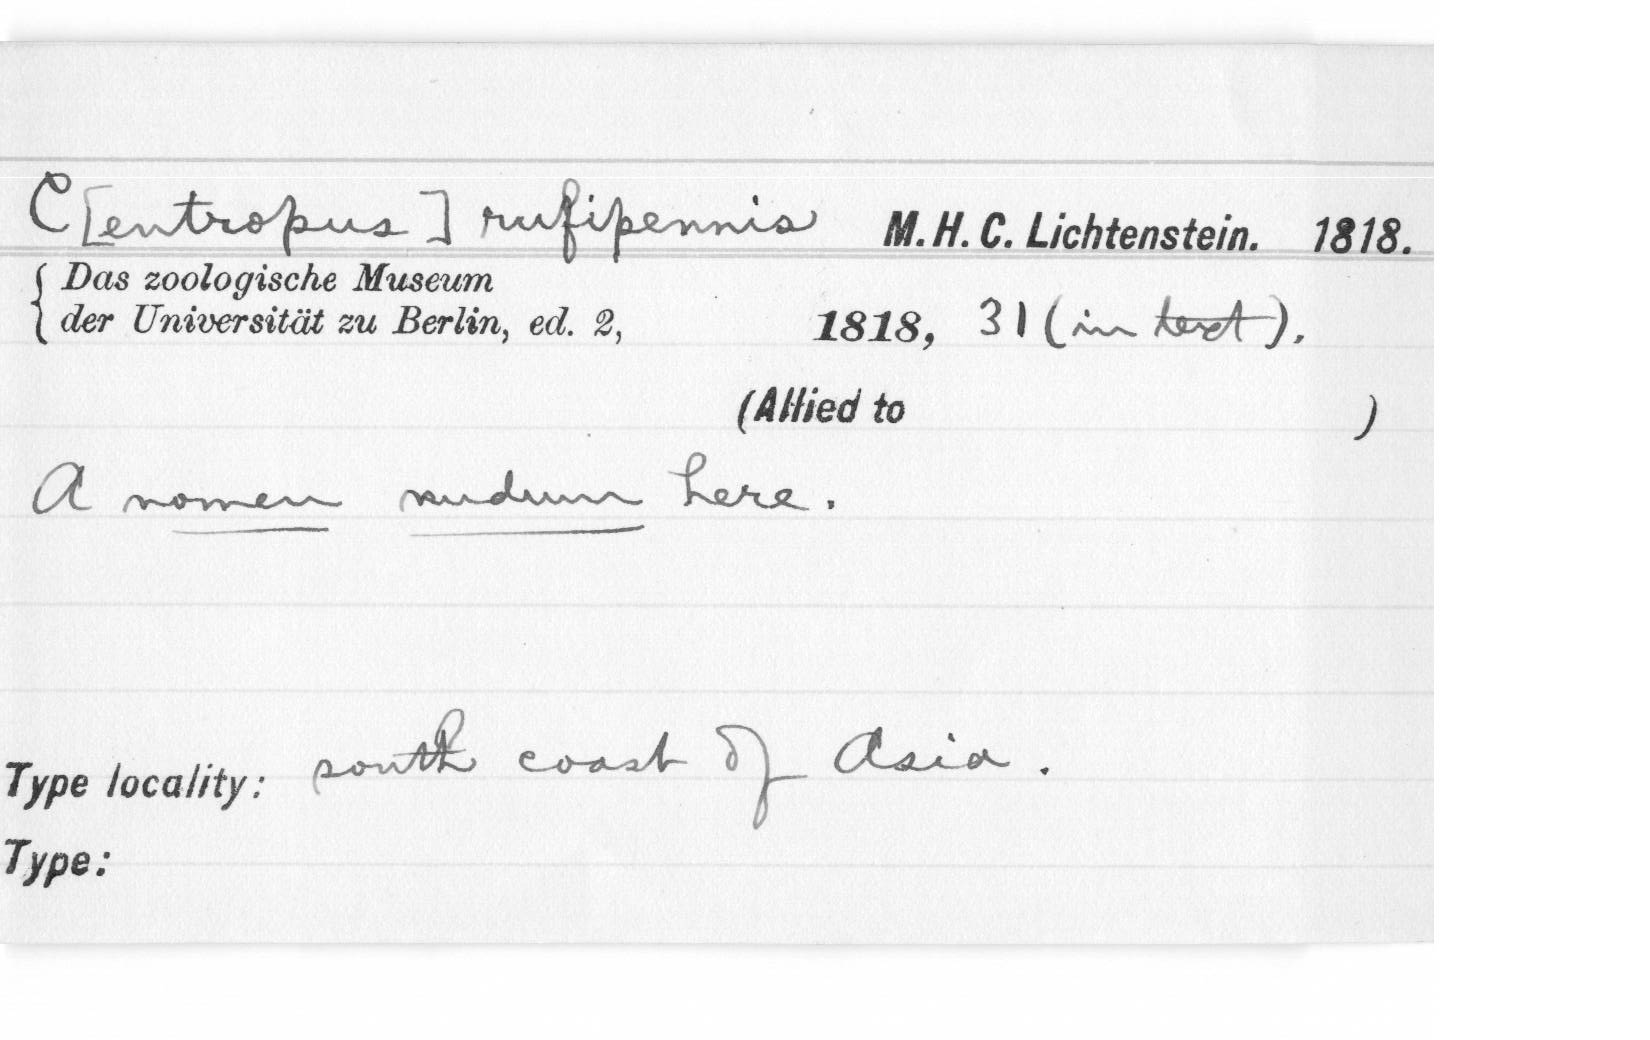 C[entropus] rufipennis M. H. C. Lichtenstein. 1818.
Das zoologische Museum
der Universität zu Berlin, ed. 2, 1818, 31 (in text).
(Allied to )
A nomen nudum here.
Type locality: south coast of Asia.
Type: